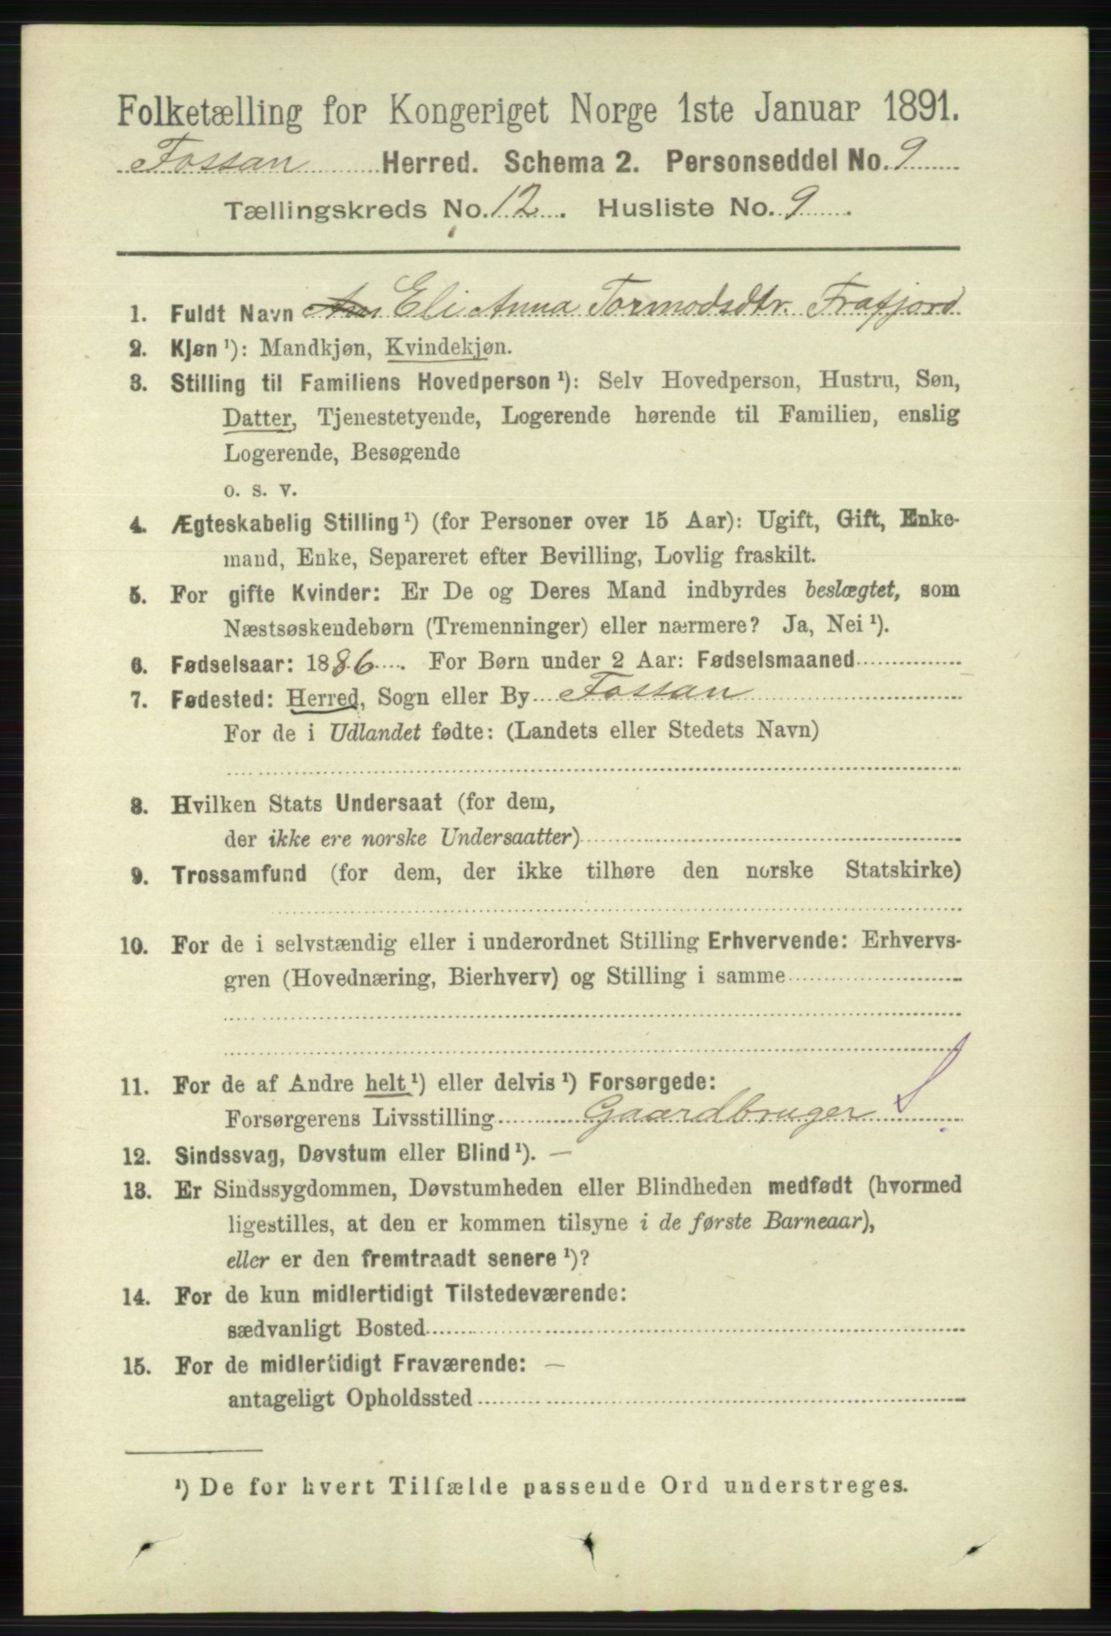 Folketælling for Kongeriget Norge 1ste Januar 1891.
Fossan Herred. Schema 2. Personseddel No. 9
Tællingskreds No. 12. Husliste No. 9.
1. Fuldt Navn Eli Anna Tormodsdtr. Frafjord
2. Kjøn ¹): Mandkjøn, Kvindekjøn.
3. Stilling til Familiens Hovedperson ¹): Selv Hovedperson, Hustru, Søn,
Datter, Tjenestetyende, Logerende hørende til Familien, enslig
Logerende, Besøgende
o. s. v.
4. Ægteskabelig Stilling ¹) (for Personer over 15 Aar): Ugift, Gift, Enke-
mand, Enke, Separeret efter Bevilling, Lovlig fraskilt.
5. For gifte Kvinder: Er De og Deres Mand indbyrdes beslægtet, som
Næstsøskendebørn (Tremenninger) eller nærmere? Ja, Nei ¹).
6. Fødselsaar: 1886. For Børn under 2 Aar: Fødselsmaaned
7. Fødested: Herred, Sogn eller By Fossan
For de i Udlandet fødte: (Landets eller Stedets Navn)
8. Hvilken Stats Undersaat (for dem,
der ikke ere norske Undersaatter)
9. Trossamfund (for dem, der ikke tilhøre den norske Statskirke)
10. For de i selvstændig eller i underordnet Stilling Erhvervende: Erhvervs-
gren (Hovednæring, Bierhverv) og Stilling i samme
11. For de af Andre helt ¹) eller delvis ¹) Forsørgede:
Forsørgerens Livsstilling Gaardbruger S
12. Sindssvag, Døvstum eller Blind ¹). —
13. Er Sindssygdommen, Døvstumheden eller Blindheden medfødt (hvormed
ligestilles, at den er kommen tilsyne i de første Barneaar),
eller er den fremtraadt senere ¹)?
14. For de kun midlertidigt Tilstedeværende:
sædvanligt Bosted
15. For de midlertidigt Fraværende: —
antageligt Opholdssted
¹) De for hvert Tilfælde passende Ord understreges.